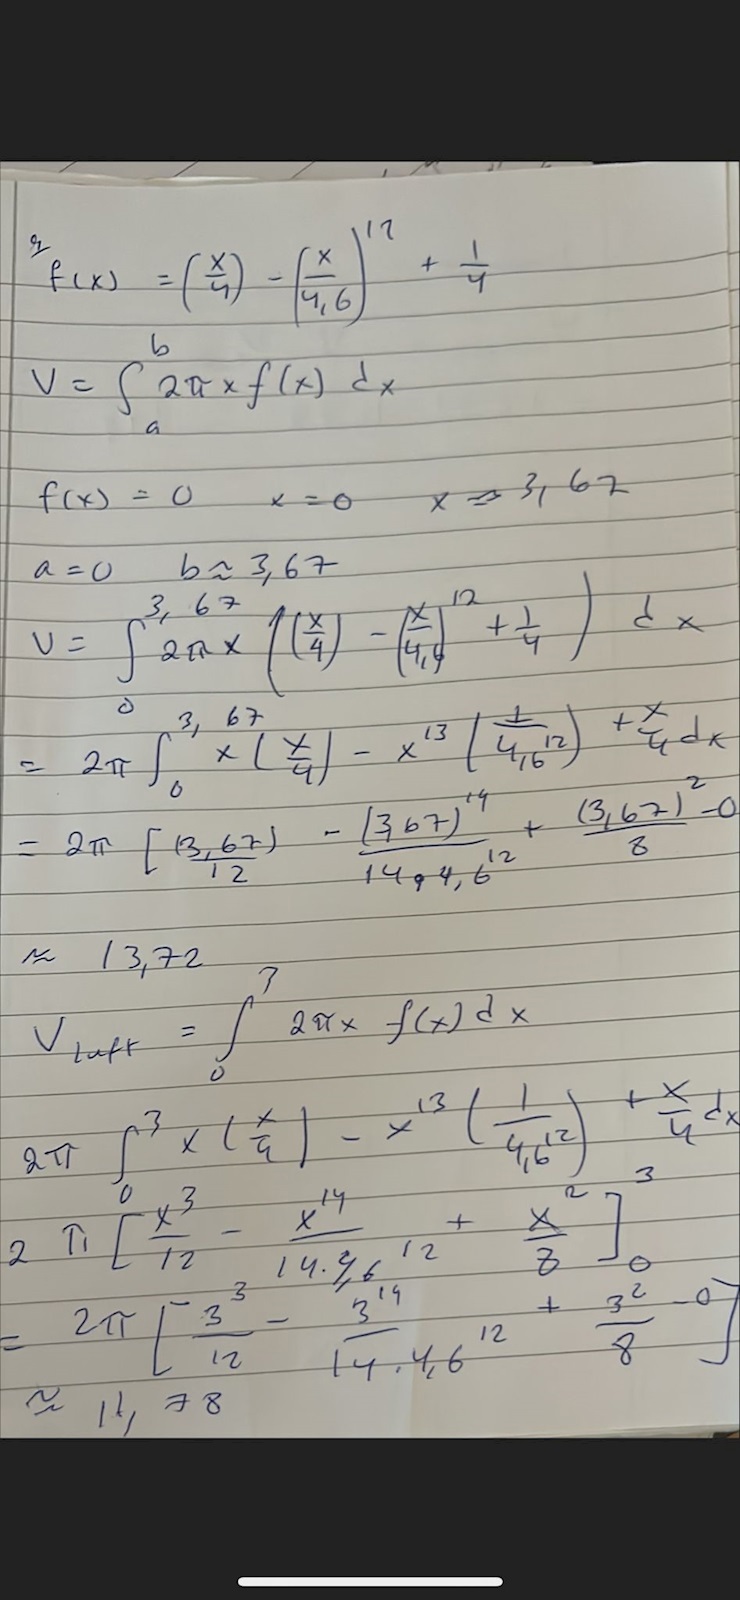 f(x) = (x/4) - (x/4,6)^12 + 1/4
V = ∫_a^b 2πx f(x) dx
f(x) = 0 x = 0 x ≈ 3,67
a = 0 b ≈ 3,67
V = ∫_0^{3,67} 2πx ((x/4) - (x/4,6)^12 + 1/4) dx
= 2π ∫_0^{3,67} x(x/4) - x^13 (1/4,6^12) + x/4 dx
= 2π [(3,67)/12 - (3,67)^14/14·4,6^12 + (3,67)^2/8 - 0
≈ 13,72
V_luft = ∫_0^3 2πx f(x) dx
2π ∫_0^3 x(x/4) - x^13 (1/4,6^12) + x/4 dx
2π [x^3/12 - x^14/14·4,6^12 + x^2/8]_0^3
= 2π [3^3/12 - 3^14/14·4,6^12 + 3^2/8 - 0]
≈ 11,78